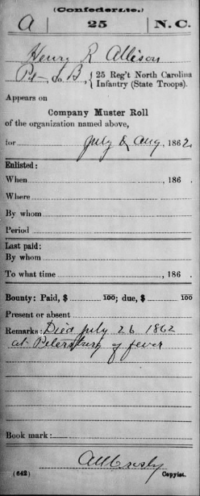 (Confederate.)
A 25 N.C.
Henry R Allison
Pt, Co B, { 25 Reg't North Carolina Infantry (State Troops).
Appears on
Company Muster Roll
of the organization named above,
for July & Aug, 1862.
Enlisted:
When , 186 .
Where
By whom
Period
Last paid:
By whom
To what time , 186 .
Bounty: Paid, $ 100; due, $ 100
Present or absent
Remarks: Died July 26 1862
at Petersburg of fever
Book mark:
(642) Copyist.